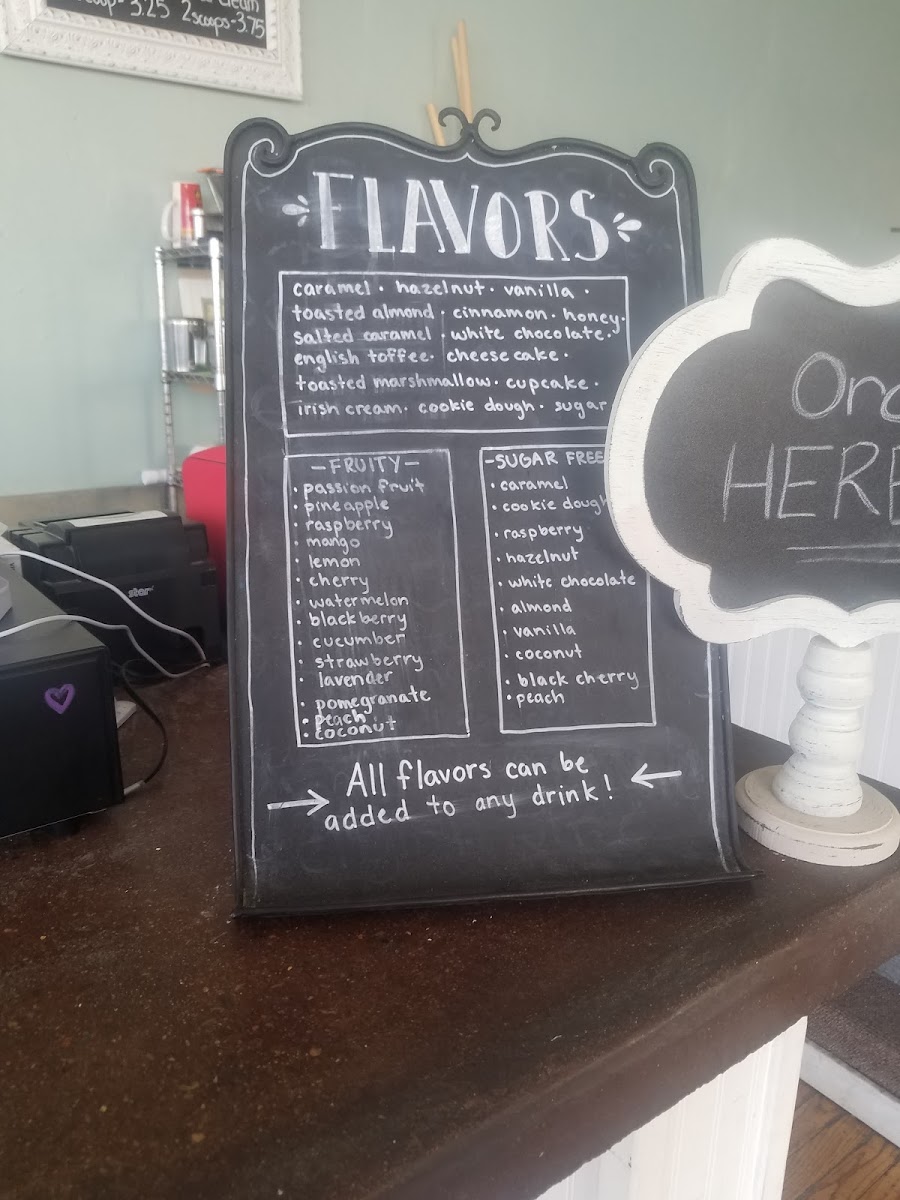 scoop-3.25 2scoops-3.75
FLAVORS
caramel · hazelnut · vanilla ·
toasted almond · cinnamon · honey·
salted caramel · white chocolate·
english toffee· cheesecake ·
toasted marshmallow· cupcake ·
irish cream· cookie dough · sugar
—FRUITY—
· passion fruit
· pineapple
· raspberry
· mango
lemon
· cherry
· watermelon
· blackberry
cucumber
· strawberry
· lavender
· pomegranate
· peach
· coconut
-SUGAR FREE
· caramel
· cookie dough
· raspberry
· hazelnut
· white chocolate
· almond
· vanilla
· coconut
· black cherry
· peach
→ All flavors can be ←
added to any drink!
HERE
star